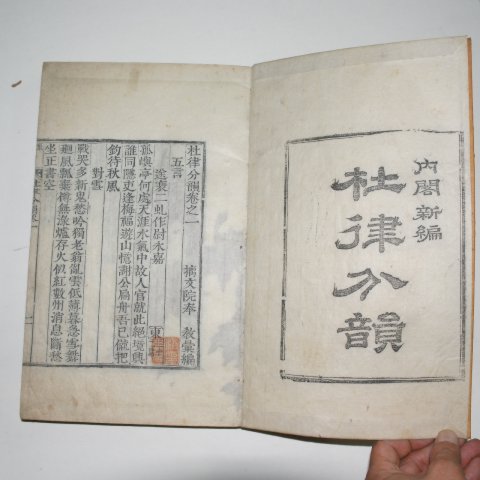 內閣新編
杜律分韻
杜律分韻卷之一 摛文院奉 教彙編
五言
送裴二虯作尉永嘉
孤嶼亭何處天涯水氣中故人官就此絕境興
誰同隱吏逢梅福遊山憶謝公扁舟吾已僦把
釣待秋風
對雪
戰哭多新鬼愁吟獨老翁亂雲低薄暮急雪舞
廻風瓢棄樽無淥爐存火似紅數州消息斷愁
坐正書空